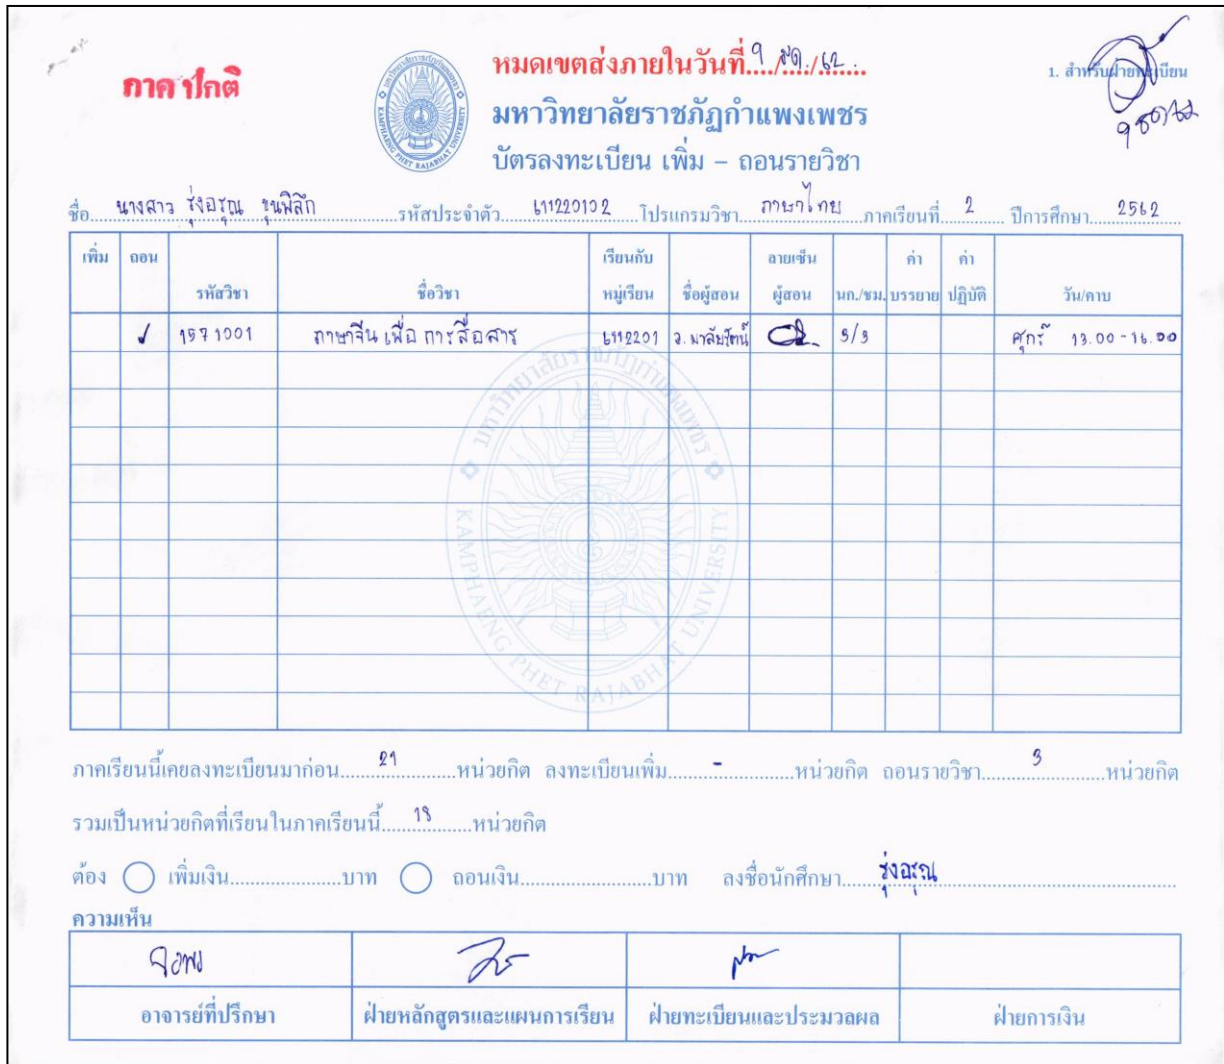 ภาค ปกติ
หมดเขตส่งภายในวันที่ 9 /มค./ 62
1. สำหรับฝ่ายทะเบียน
มหาวิทยาลัยราชภัฏกำแพงเพชร
บัตรลงทะเบียน เพิ่ม – ถอนรายวิชา
KAMPHAENG PHET RAJABHAT UNIVERSITY
ชื่อ นางสาว รุ่งอรุณ ขุนพิลึก รหัสประจำตัว 611220102 โปรแกรมวิชา ภาษาไทย ภาคเรียนที่ 2 ปีการศึกษา 2562
เพิ่ม ถอน รหัสวิชา ชื่อวิชา เรียนกับหมู่เรียน ชื่อผู้สอน ลายเซ็นผู้สอน นก./ชม. ค่าบรรยาย ค่าปฏิบัติ วัน/คาบ
✓ 1571001 ภาษาจีน เพื่อ การสื่อสาร 6112201 อ. มาลัยรัตน์ 3/3 ศุกร์ 13.00 - 16.00
มหาวิทยาลัยราชภัฏกำแพงเพชร
KAMPHAENG PHET RAJABHAT UNIVERSITY
ภาคเรียนนี้เคยลงทะเบียนมาก่อน 21 หน่วยกิต ลงทะเบียนเพิ่ม - หน่วยกิต ถอนรายวิชา 3 หน่วยกิต
รวมเป็นหน่วยกิตที่เรียนในภาคเรียนนี้ 18 หน่วยกิต
ต้อง เพิ่มเงิน บาท ถอนเงิน บาท ลงชื่อนักศึกษา รุ่งอรุณ
ความเห็น
อาจารย์ที่ปรึกษา ฝ่ายหลักสูตรและแผนการเรียน ฝ่ายทะเบียนและประมวลผล ฝ่ายการเงิน